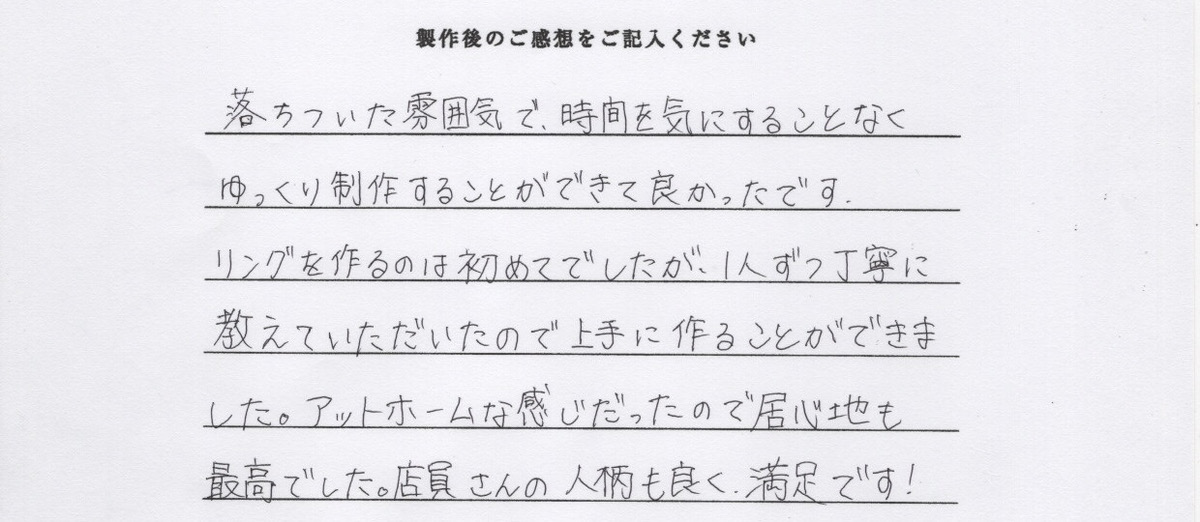 製作後のご感想をご記入ください
落ちついた雰囲気で、時間を気にすることなく
ゆっくり制作することができて良かったです.
リングを作るのは初めてでしたが、1人ずつ丁寧に
教えていただいたので上手に作ることができま
した。アットホームな感じだったので居心地も
最高でした。店員さんの人柄も良く、満足です!